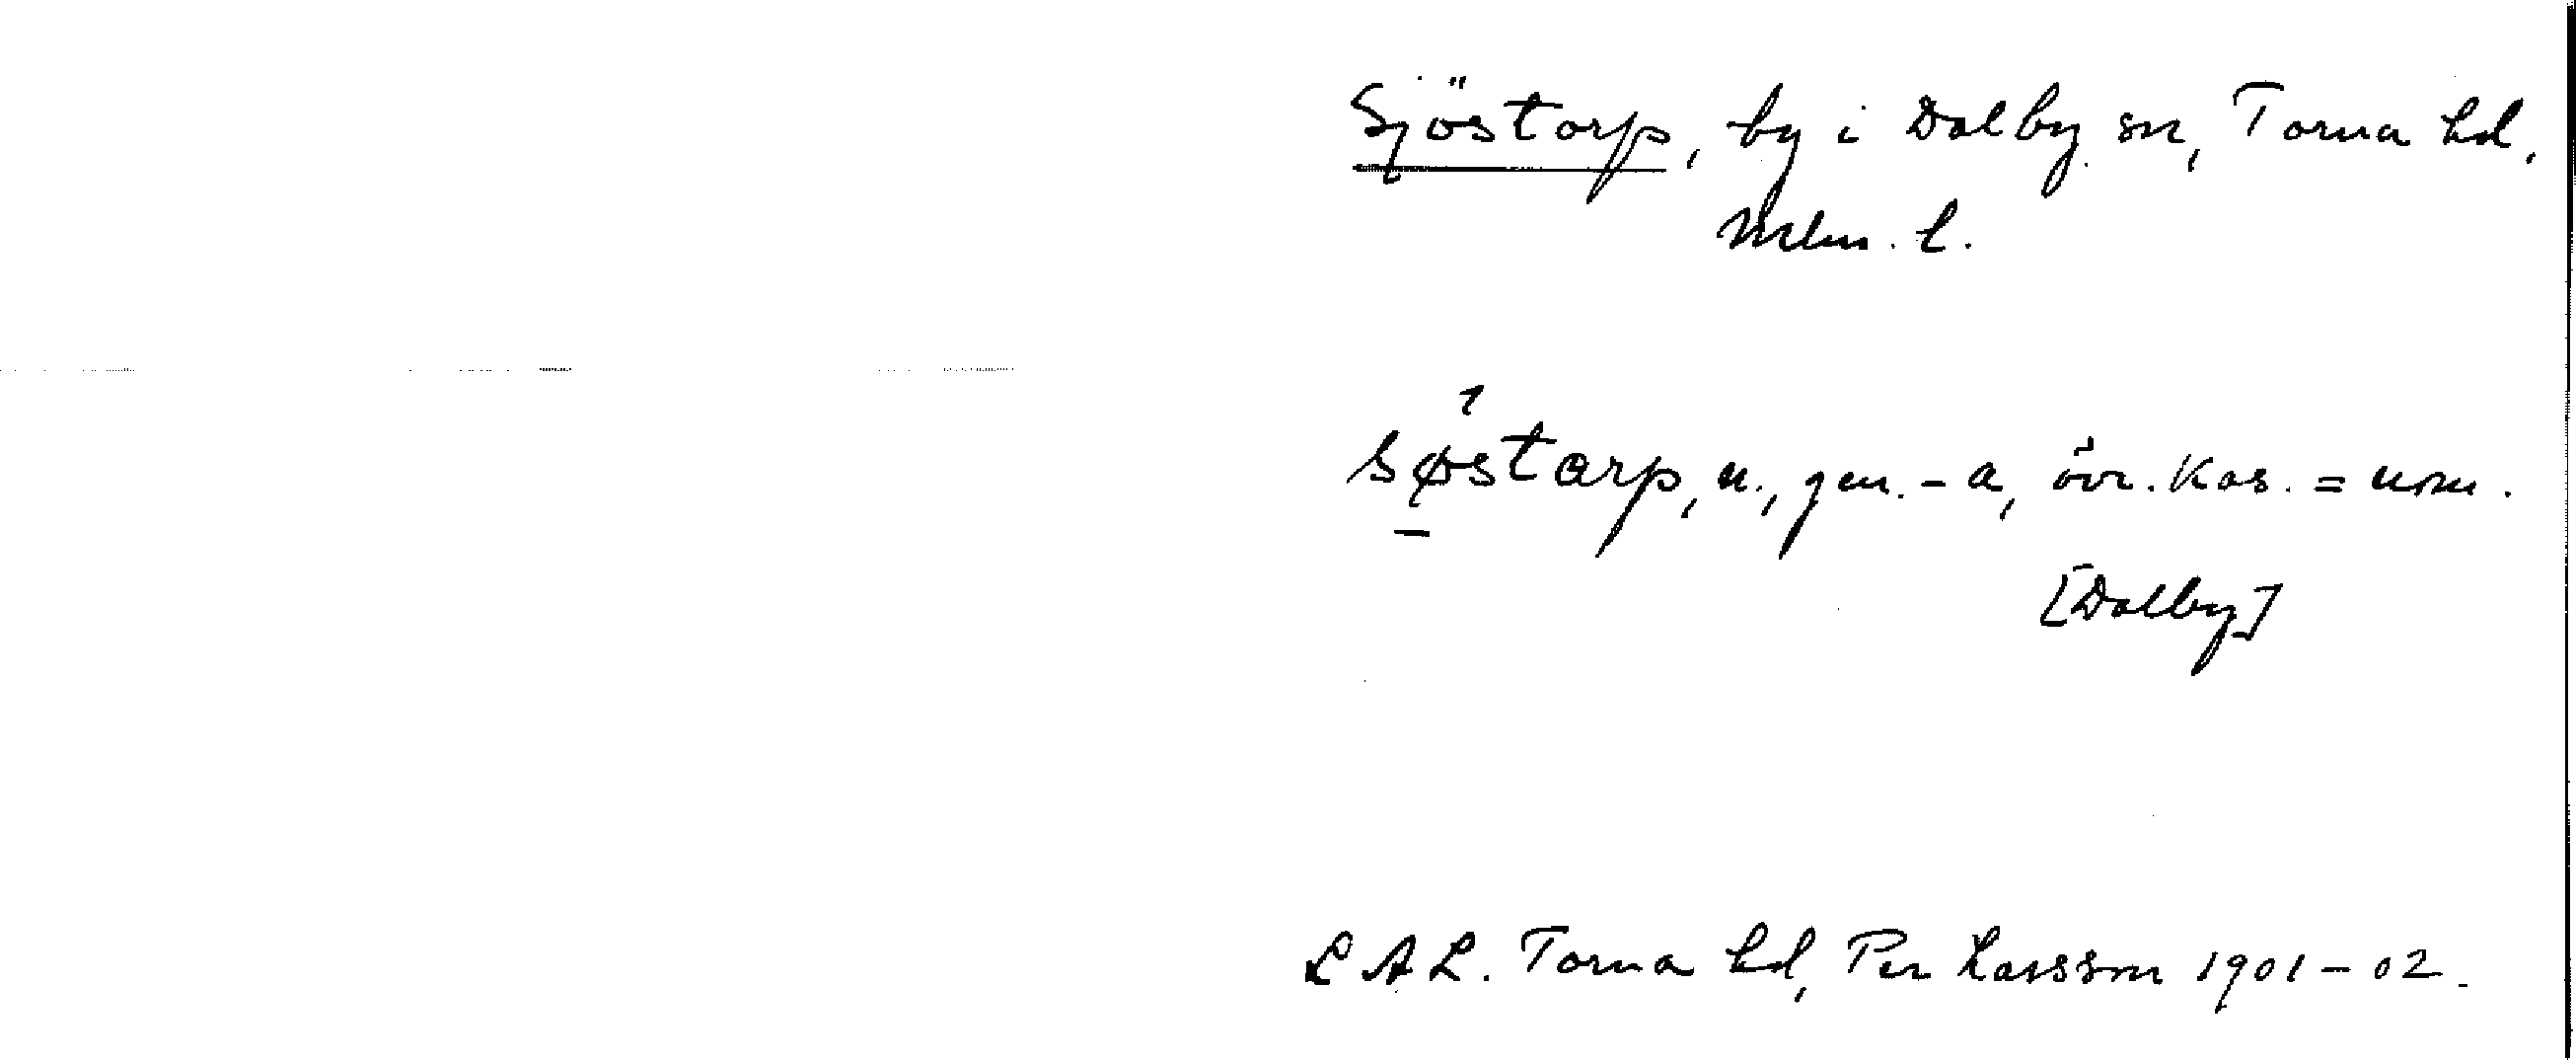 Sjöstorp, by i Dalby sn, Torna hd,
Mlm. l.
søstarp, n., gen. -a, övr. kas. = nom.
[Dalby]
LAL. Torna hd, Per Larsson 1901-02.